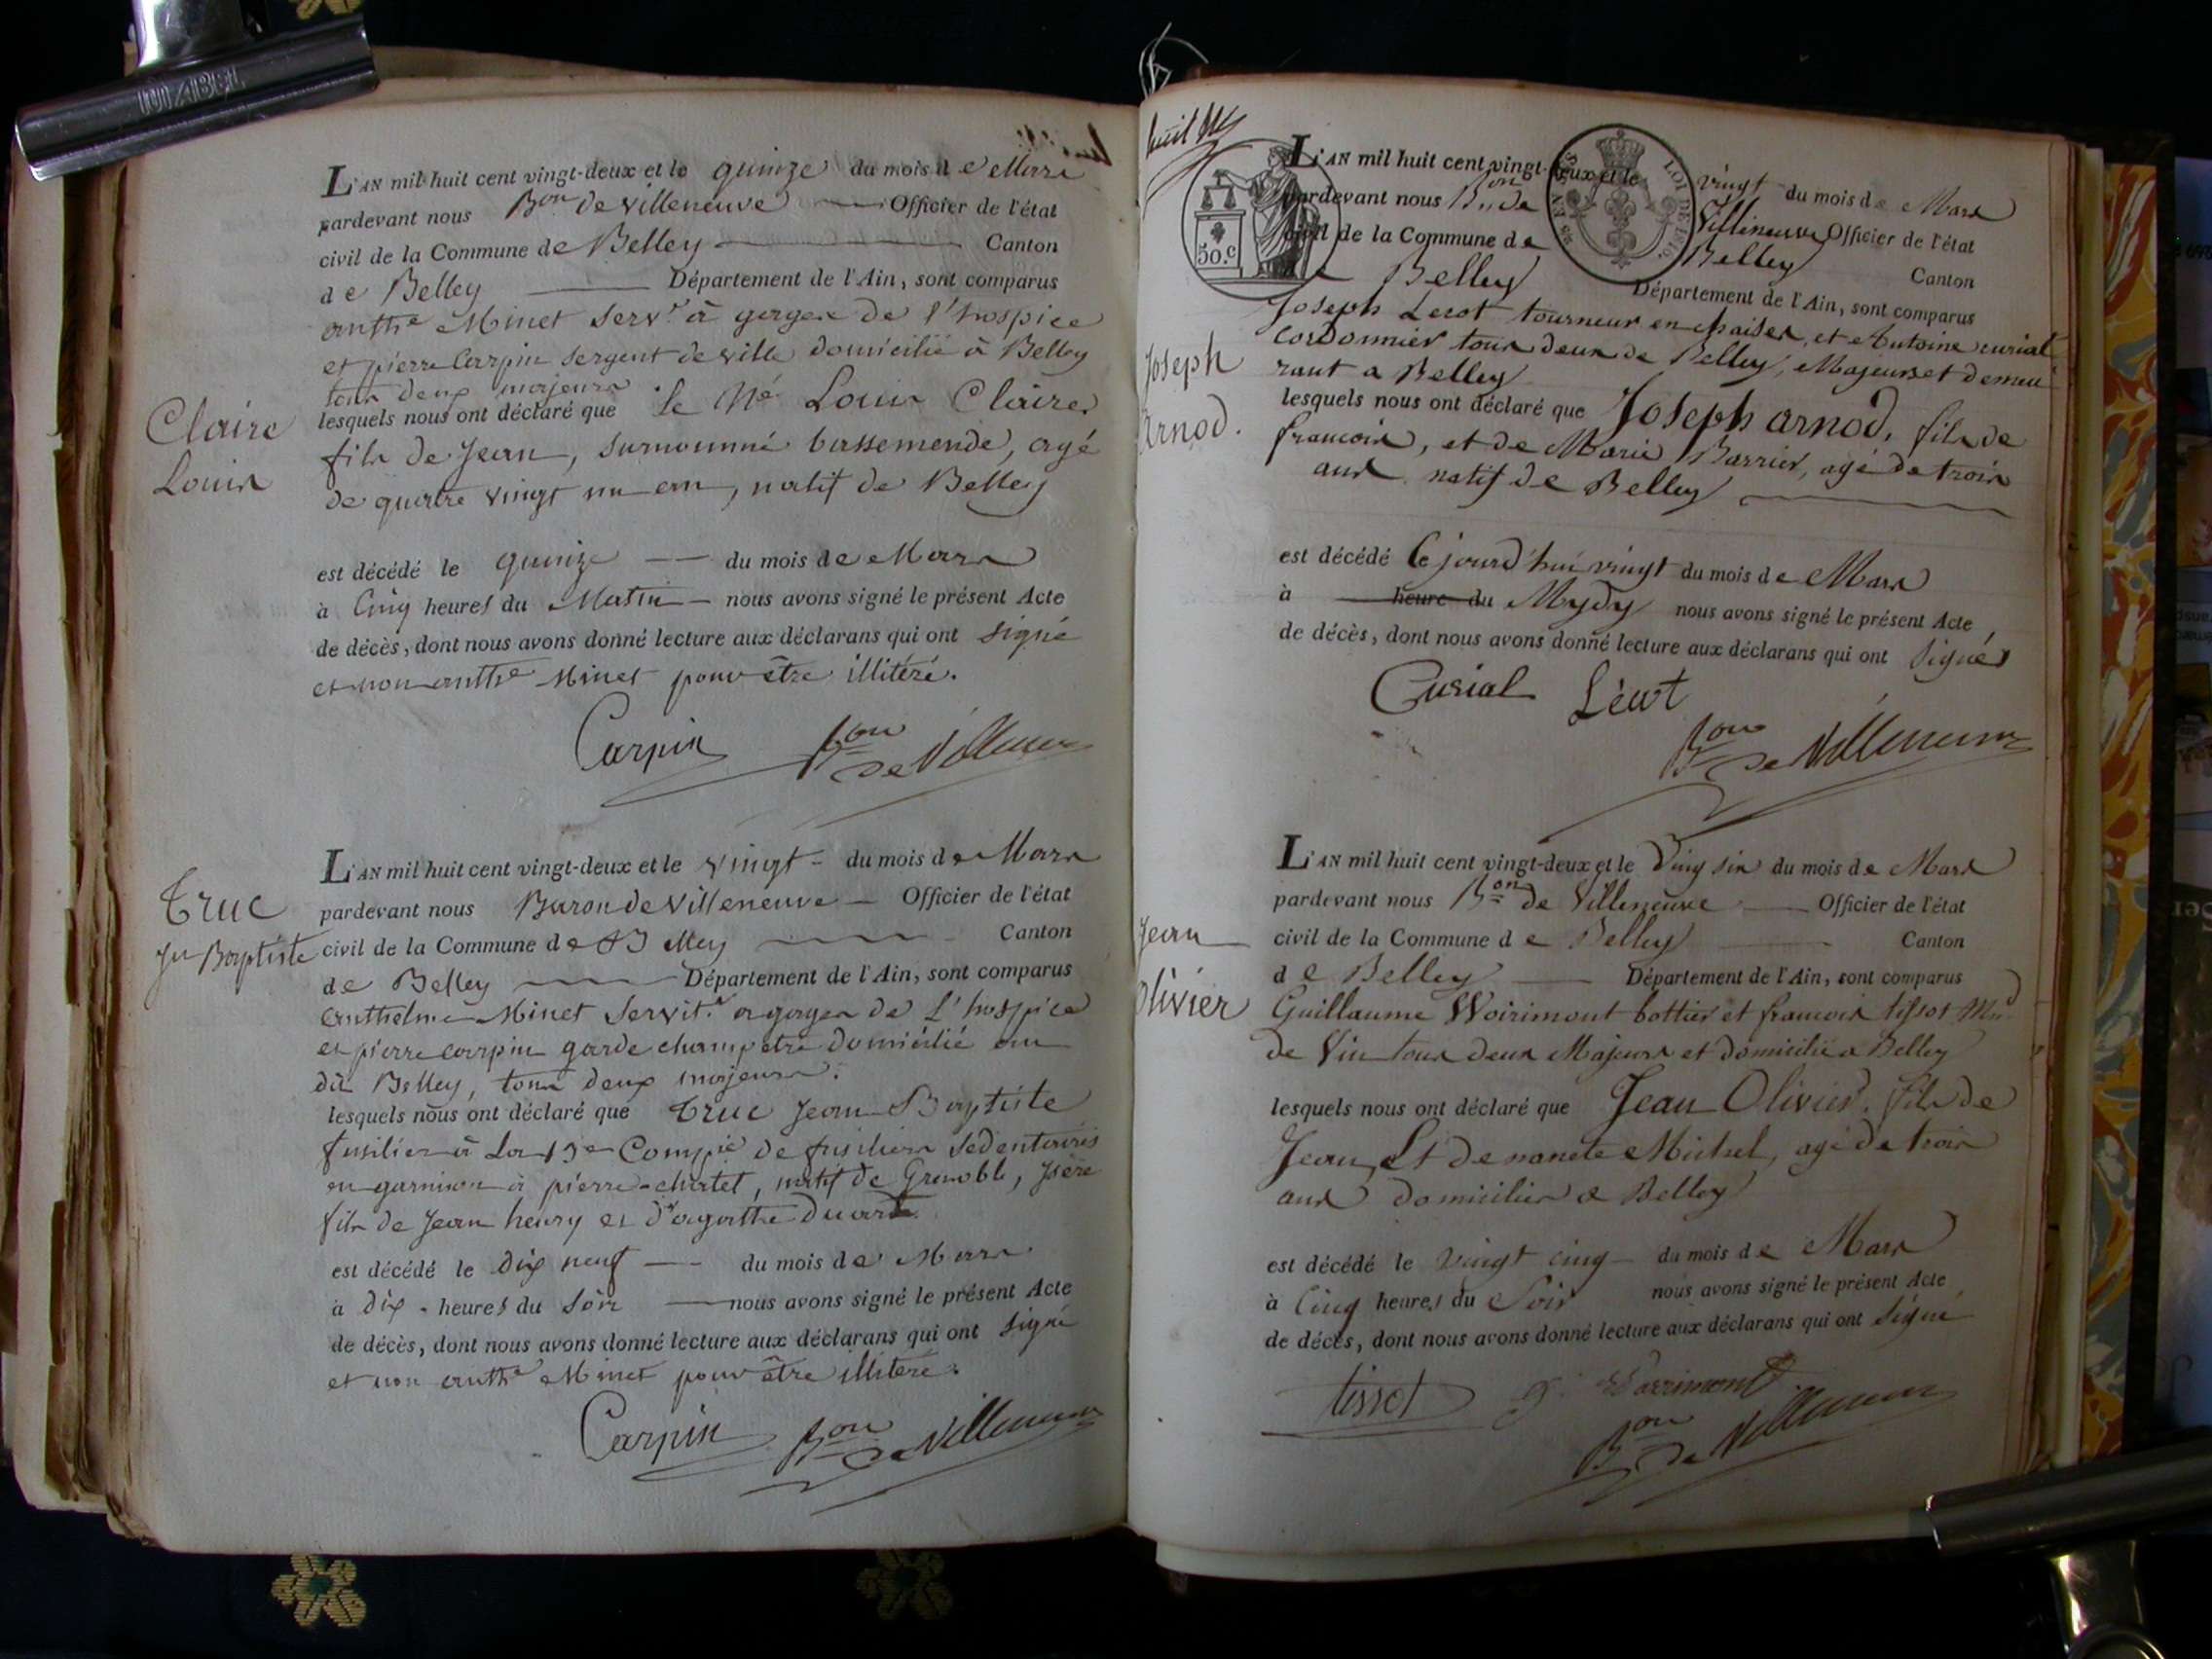 L'AN mil huit cent vingt-deux et le quinze du mois de Mars
pardevant nous Bon de Villeneuve Officier de l'état
civil de la Commune de Belley Canton
de Belley Département de l'Ain, sont comparus
anthe Minet servr à gages de l'hospice
et pierre Carpin sergent de ville domicilié à Belley
tous deux majeurs
lesquels nous ont déclaré que le Né Louis Claire
Claire
fils de Jean, surnommé bassemende, agé
Louis
de quatre vingt un an, natif de Belley
est décédé le quinze du mois de Mars
à Cinq heures du Matin nous avons signé le présent Acte
de décès, dont nous avons donné lecture aux déclarans qui ont signé
et non anthe Minet pour être illitéré.
Carpin Bon de Villeneuve
L'AN mil huit cent vingt-deux et le vingt du mois de Mars
Truc
pardevant nous Baron de Villeneuve Officier de l'état
Jn Baptiste
civil de la Commune de Belley Canton
de Belley Département de l'Ain, sont comparus
anthelme Minet servitr a gages de l'hospice
et pierre carpin garde champetre domicilié au
dit Belley, tous deux majeurs.
lesquels nous ont déclaré que Truc Jean Baptiste
fusilier à La 13e Compie de fusiliers sédentaires
en garnison à pierre-chatel, natif de Grenoble, Isère
fils de Jean henry et d'agathe
est décédé le dix neuf du mois de Mars
à dix heures du soir nous avons signé le présent Acte
de décès, dont nous avons donné lecture aux déclarans qui ont signé
et non anthe Minet pour être illitéré.
Carpin Bon de Villeneuve
huit
L'AN mil huit cent vingt-deux et le vingt du mois de Mars
pardevant nous Bon de Villeneuve Officier de l'état
civil de la Commune de Belley Canton
de Belley Département de l'Ain, sont comparus
50.c
LOI DE 1816
Joseph Lecot tourneur en chaises, et Antoine curial
cordonnier tous deux de Belley, Majeurs et demeu
Joseph
rant a Belley
Arnod.
lesquels nous ont déclaré que Joseph arnod, fils de
francois, et de Marie Barrier, agé de trois
ans natif de Belley
est décédé Cejourd'hui vingt du mois de Mars
à heure du Mydy nous avons signé le présent Acte
de décès, dont nous avons donné lecture aux déclarans qui ont signés
Curial Lécot
Bon de Villeneuve
L'AN mil huit cent vingt-deux et le Vingt six du mois de Mars
pardevant nous Bon de Villeneuve Officier de l'état
Jean
civil de la Commune de Belley Canton
de Belley Département de l'Ain, sont comparus
Olivier
Guillaume Woirimont bottier et francois tissot Md
de Vin tous deux Majeurs et domicilié a Belley
lesquels nous ont déclaré que Jean Olivier, fils de
Jean, Et de nanete Michel, agé de trois
ans domicilier a Belley
est décédé le vingt cinq du mois de Mars
à Cinq heures du Soir nous avons signé le présent Acte
de décès, dont nous avons donné lecture aux déclarans qui ont signé
tissot
Bon de Villeneuve